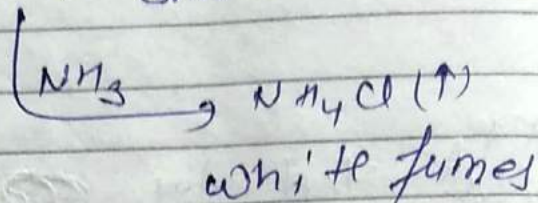 NH3 → NH4Cl (↑)
white fumes